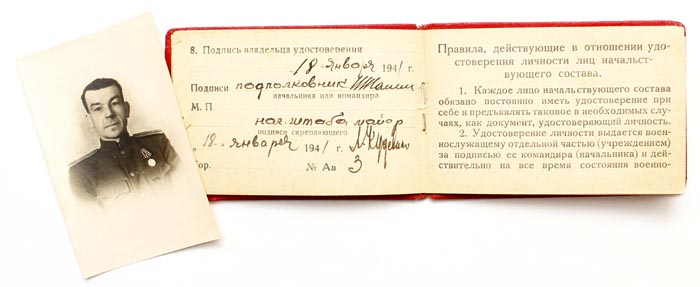 8. Подпись владельца удостоверения
„18" января 1941 г.
Подписи подполковник
начальника или командира
М. П
нач. штаба майор
подписи скрепляющего
„18" января 1941 г.
Гор. № Ав 3
Правила, действующие в отношении удо-
стоверения личности лиц начальст-
вующего состава.
1. Каждое лицо начальствующего состава
обязано постоянно иметь удостоверение при
себе и предъявлять таковое в необходимых слу-
чаях, как документ, удостоверяющий личность.
2. Удостоверение личности выдается воен-
нослужащему отдельной частью (учреждением)
за подписью ее командира (начальника) и дей-
ствительно на все время состояния военно-